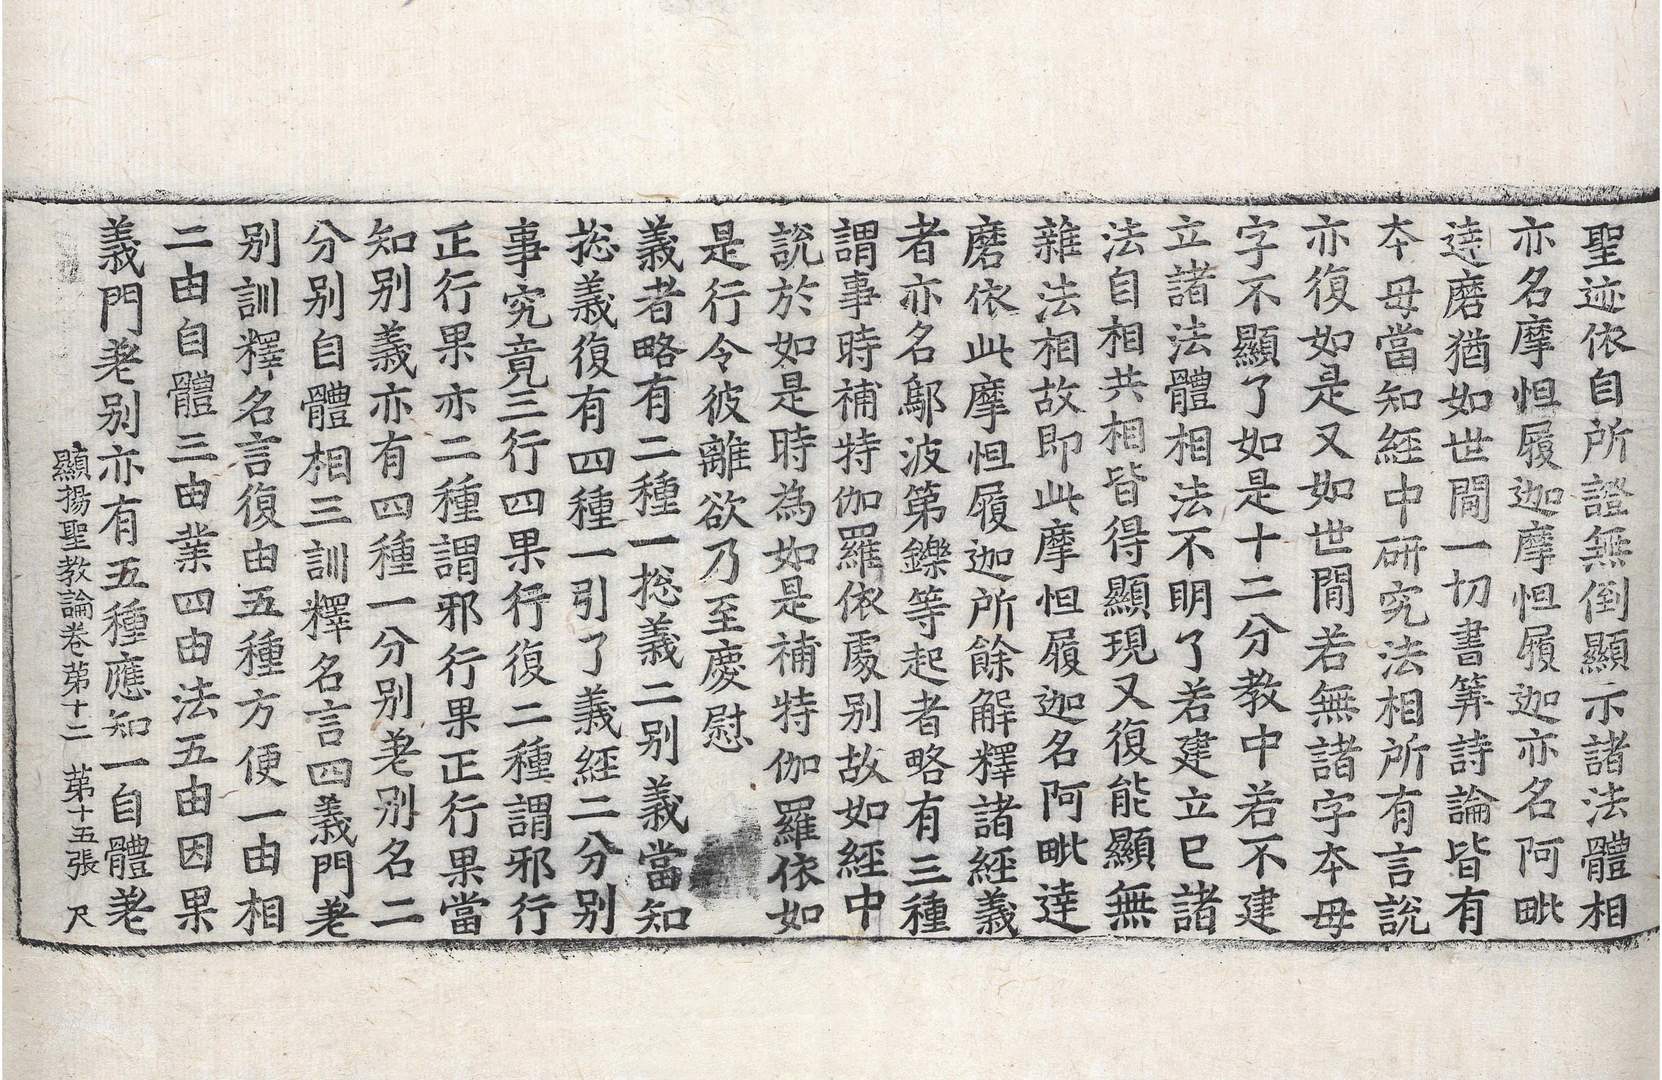 聖迹依自所證無倒顯示諸法體相
亦名摩怛履迦摩怛履迦亦名阿毗
達磨猶如世間一切書筭詩論皆有
本母當知經中研究法相所有言說
亦復如是又如世間若無諸字本母
字不顯了如是十二分教中若不建
立諸法體相法不明了若建立已諸
法自相共相皆得顯現又復能顯無
雜法相故即此摩怛履迦名阿毗達
磨依此摩怛履迦所餘解釋諸經義
者亦名鄔波第鑠等起者略有三種
謂事時補特伽羅依處別故如經中
說於如是時為如是補特伽羅依如
是行令彼離欲乃至慶慰
義者略有二種一捴義二別義當知
捴義復有四種一引了義經二分別
事究竟三行四果行復二種謂邪行
正行果亦二種謂邪行果正行果當
知別義亦有四種一分別差別名二
分別自體相三訓釋名言四義門差
別訓釋名言復由五種方便一由相
二由自體三由業四由法五由因果
義門差別亦有五種應知一自體差
顯揚聖教論卷第十二　第十五張　尺